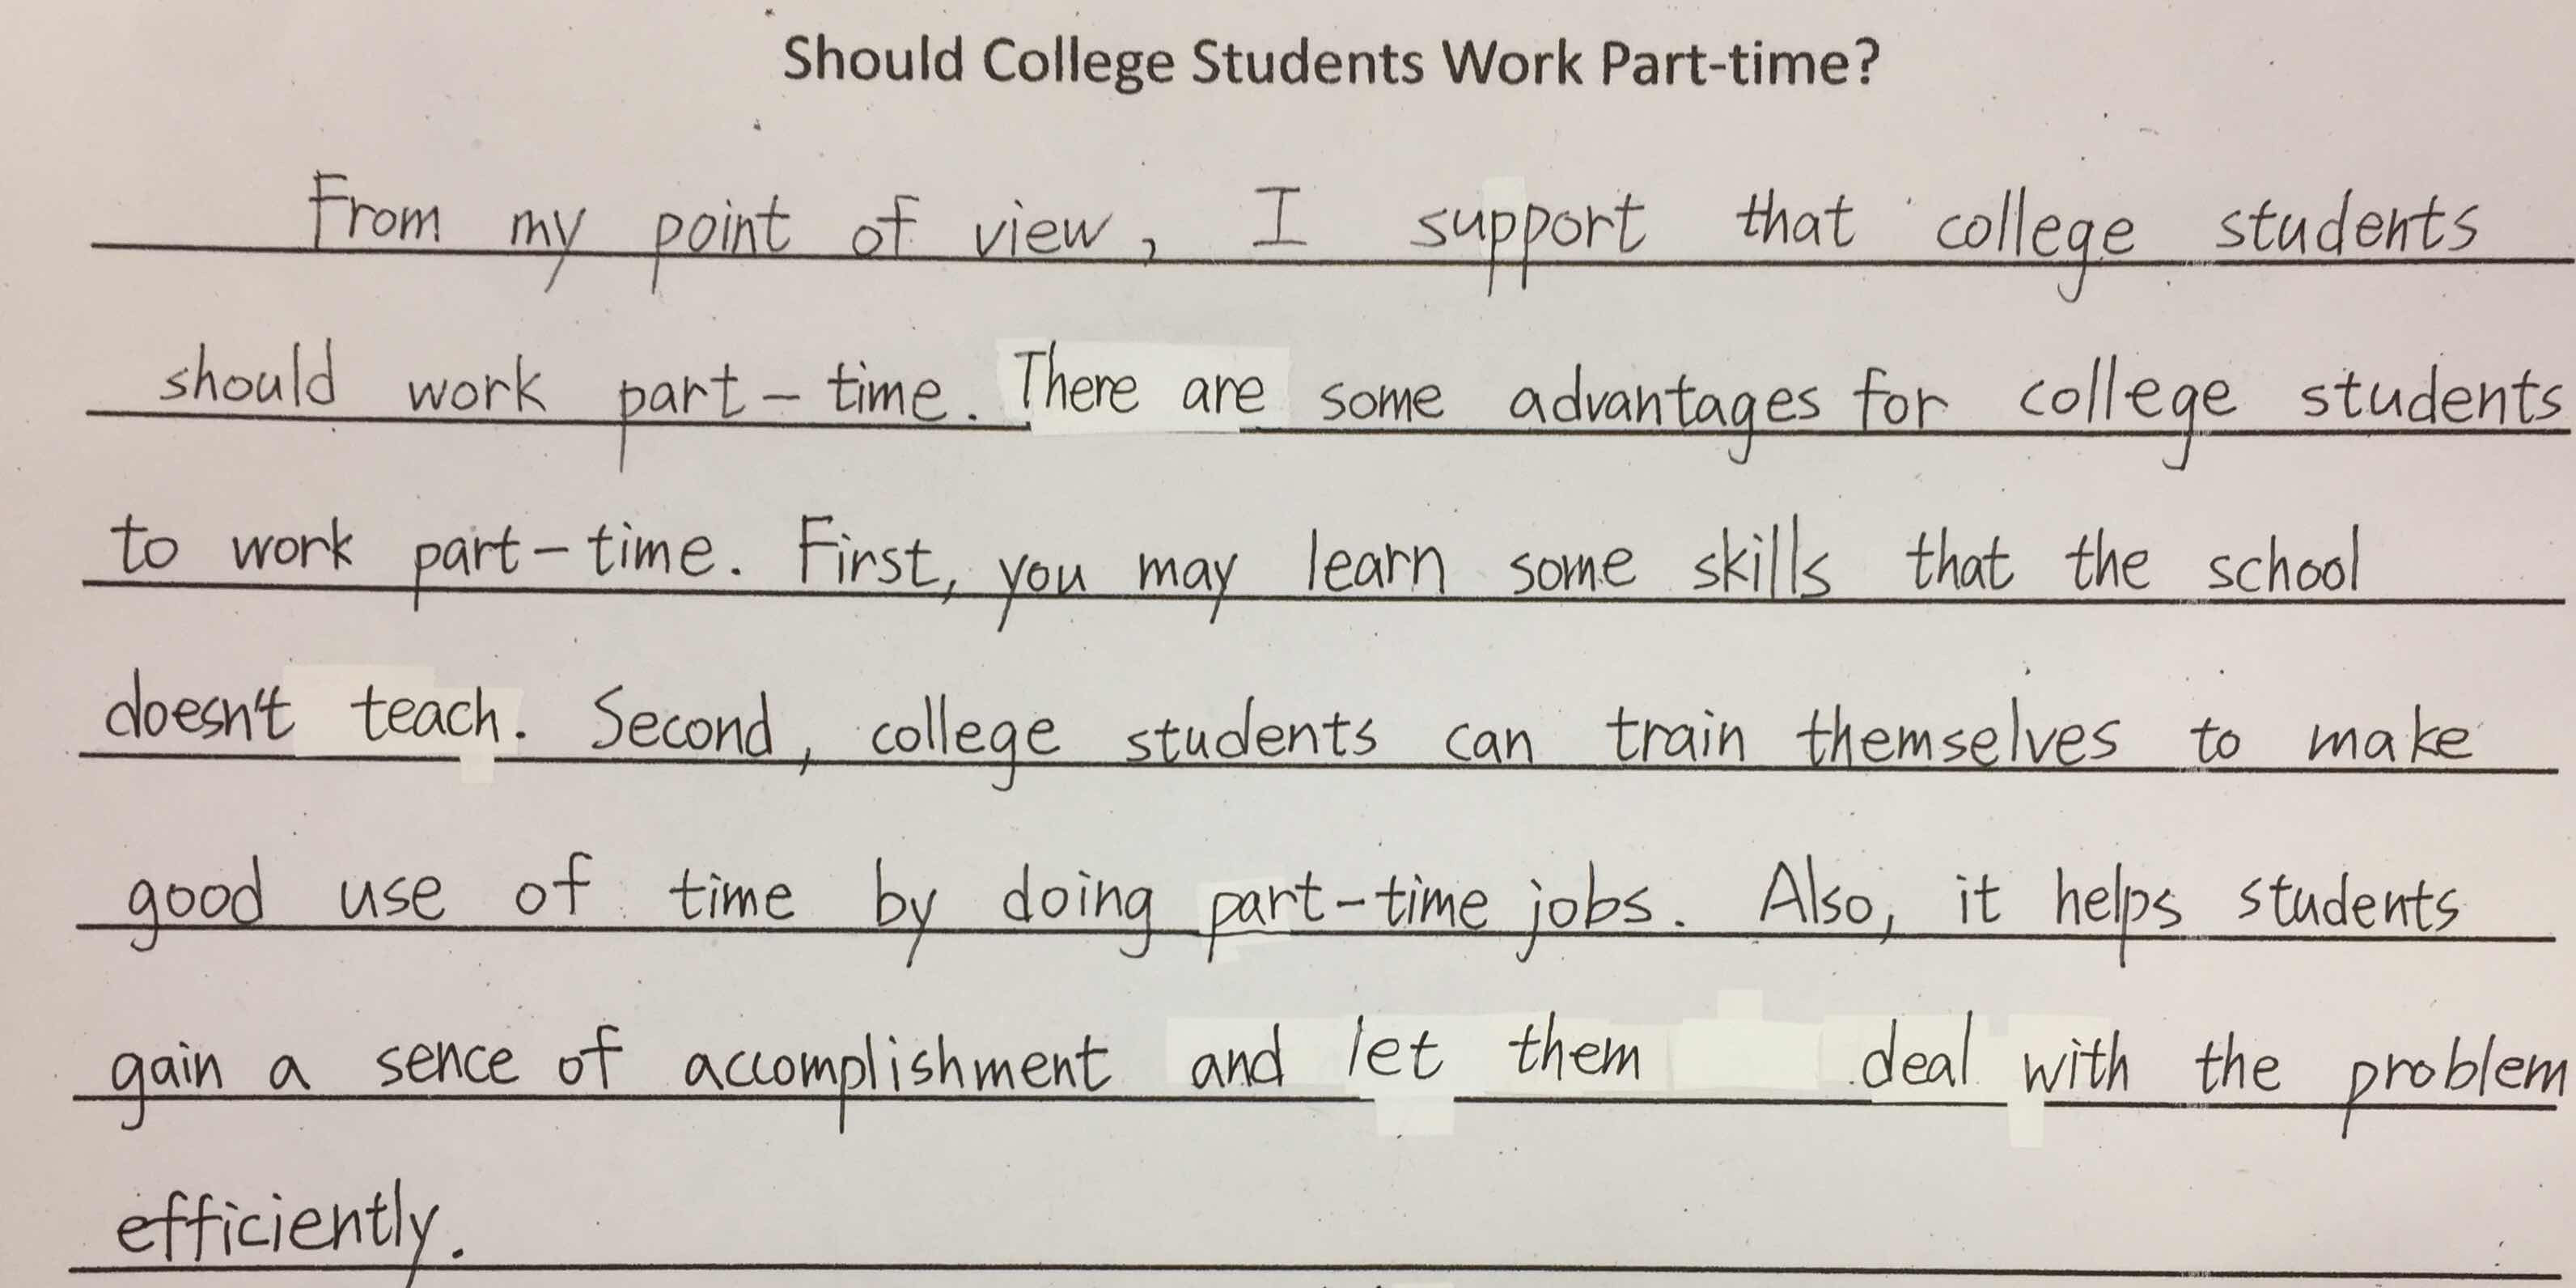 Should College Students Work Part-time?
From my point of view, I support that college students
should work part-time. There are some advantages for college students
to work part-time. First, you may learn some skills that the school
doesn't teach. Second, college students can train themselves to make
good use of time by doing part-time jobs. Also, it helps students
gain a sence of accomplishment and let them deal with the problem
efficiently.